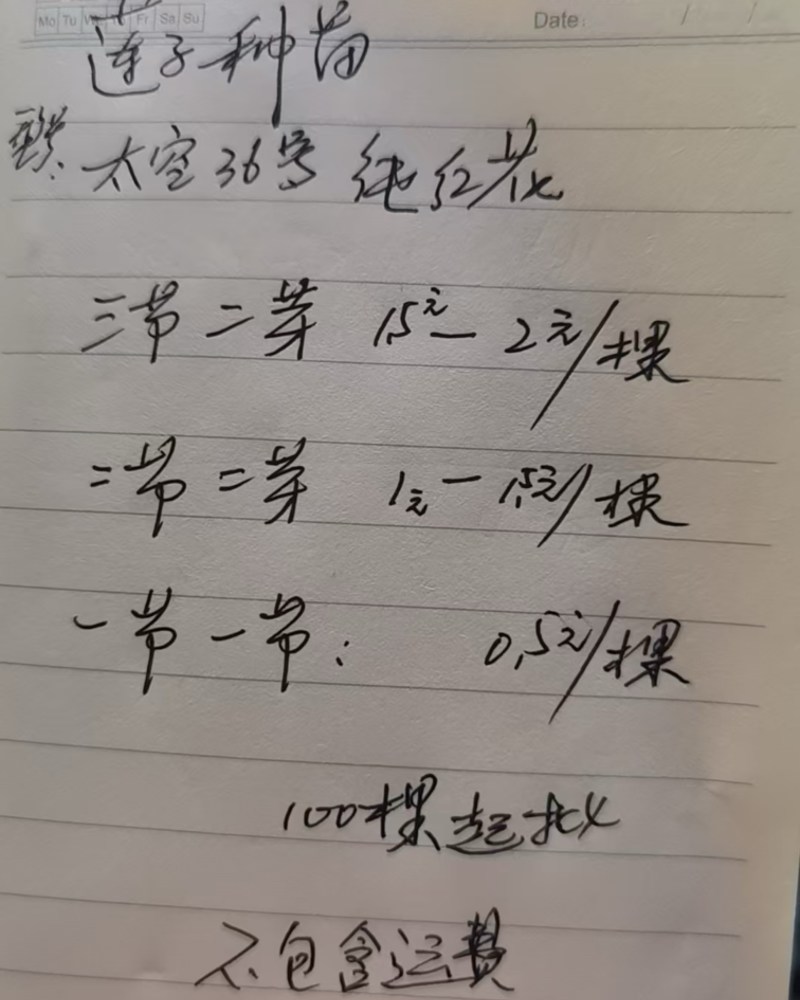 Mo Tu We Th Fr Sa Su Date: / /
莲子种苗
太空36号 纯红花
三节二芽 1.5元一2元/棵
二节二芽 1元一1.5元/棵
一节一节: 0.5元/棵
100棵起批
不包含运费